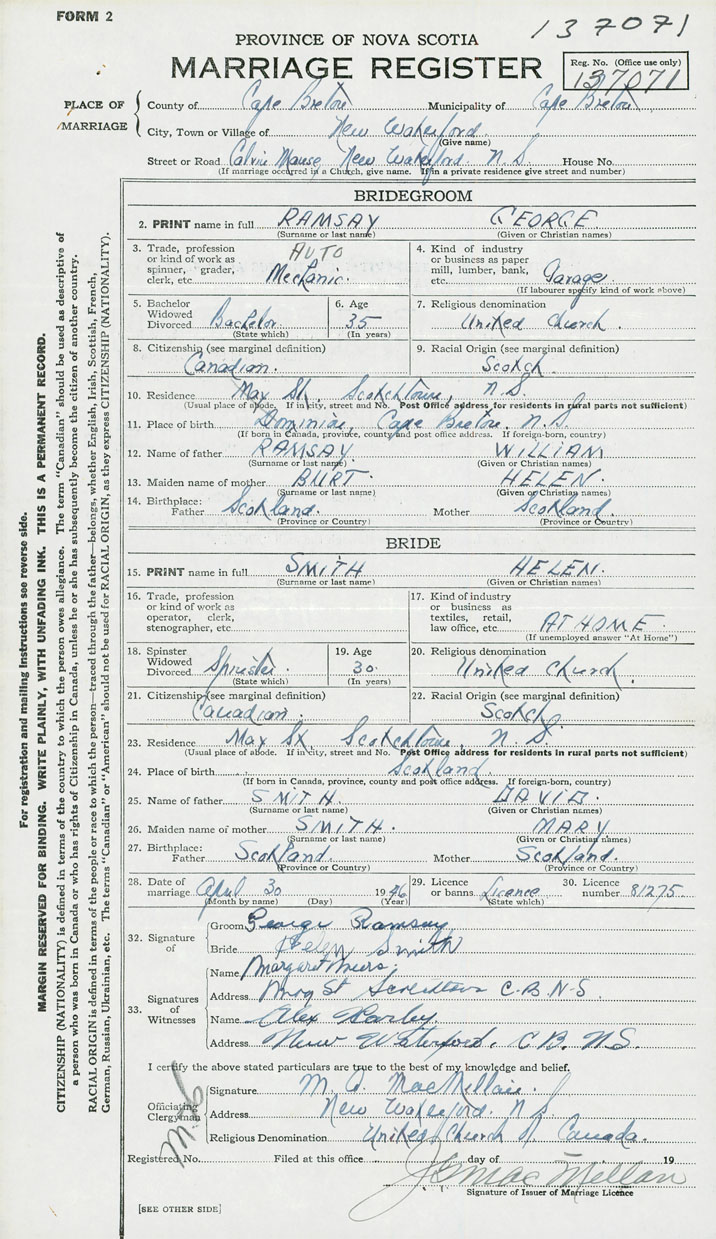 FORM 2
137071
PROVINCE OF NOVA SCOTIA
MARRIAGE REGISTER
Reg. No. (Office use only)
137071
PLACE OF MARRIAGE
County of Cape Breton Municipality of Cape Breton
City, Town or Village of New Waterford
(Give name)
Street or Road Calvin Manse New Waterford. N.S. House No.
(If marriage occurred in a Church, give name. If in a private residence give street and number)
BRIDEGROOM
2. PRINT name in full RAMSAY GEORGE
(Surname or last name) (Given or Christian names)
3. Trade, profession or kind of work as spinner, grader, clerk, etc. AUTO Mechanic.
4. Kind of industry or business as paper mill, lumber, bank, etc. Garage.
(If labourer specify kind of work above)
5. Bachelor Widowed Divorced Bachelor
(State which)
6. Age 35
(In years)
7. Religious denomination
United Church.
8. Citizenship (see marginal definition)
Canadian.
9. Racial Origin (see marginal definition)
Scotch.
10. Residence May St. Scotchtown, N.S.
(Usual place of abode. If in city, street and No. Post Office address for residents in rural parts not sufficient)
11. Place of birth Dominion, Cape Breton. N.S.
(If born in Canada, province, county and post office address. If foreign-born, country)
12. Name of father RAMSAY WILLIAM
(Surname or last name) (Given or Christian names)
13. Maiden name of mother BURT HELEN.
(Surname or last name) (Given or Christian names)
14. Birthplace: Father Scotland. Mother Scotland.
(Province or Country) (Province or Country)
BRIDE
15. PRINT name in full SMITH HELEN.
(Surname or last name) (Given or Christian names)
16. Trade, profession or kind of work as operator, clerk, stenographer, etc.
17. Kind of industry or business as textiles, retail, law office, etc. AT HOME.
(If unemployed answer "At Home")
18. Spinster Widowed Divorced Spinster.
(State which)
19. Age 30.
(In years)
20. Religious denomination
United Church.
21. Citizenship (see marginal definition)
Canadian.
22. Racial Origin (see marginal definition)
Scotch
23. Residence May St. Scotchtown, N.S.
(Usual place of abode. If in city, street and No. Post Office address for residents in rural parts not sufficient)
24. Place of birth Scotland.
(If born in Canada, province, county and post office address. If foreign-born, country)
25. Name of father SMITH. DAVID.
(Surname or last name) (Given or Christian names)
26. Maiden name of mother SMITH. MARY
(Surname or last name) (Given or Christian names)
27. Birthplace: Father Scotland. Mother Scotland.
(Province or Country) (Province or Country)
28. Date of marriage April 30 1946
(Month by name) (Day) (Year)
29. Licence or banns Licence
(State which)
30. Licence number 81275
32. Signature of
Groom George Ramsay
Bride Helen Smith
33. Signatures of Witnesses
Name Margaret
Address St C.B. N.S.
Name Alex
Address New Waterford. C.B. N.S.
I certify the above stated particulars are true to the best of my knowledge and belief.
Officiating Clergyman
Signature M. A. MacMillan.
Address New Waterford. N.S.
Religious Denomination United Church of Canada.
Registered No. Filed at this office day of 19
MacMillan
Signature of Issuer of Marriage Licence
[SEE OTHER SIDE]
For registration and mailing instructions see reverse side.
MARGIN RESERVED FOR BINDING. WRITE PLAINLY, WITH UNFADING INK. THIS IS A PERMANENT RECORD.
CITIZENSHIP (NATIONALITY) is defined in terms of the country to which the person owes allegiance. The term "Canadian" should be used as descriptive of
a person who was born in Canada or who has rights of Citizenship in Canada, unless he or she has subsequently become the citizen of another country.
RACIAL ORIGIN is defined in terms of the people or race to which the person—traced through the father—belongs, whether English, Irish, Scottish, French,
German, Russian, Ukrainian, etc. The terms "Canadian" or "American" should not be used for RACIAL ORIGIN, as they express CITIZENSHIP (NATIONALITY).